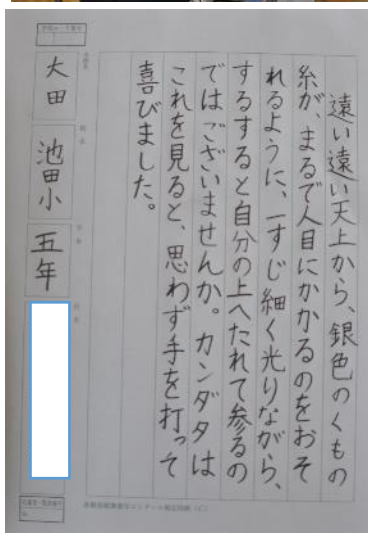 遠い遠い天上から、銀色のくもの
糸が、まるで人目にかかるのをおそ
れるように、一すじ細く光りながら、
するすると自分の上へたれて参るの
ではございませんか。カンダタは
これを見ると、思わず手を打って
喜びました。
大田 池田小 五年